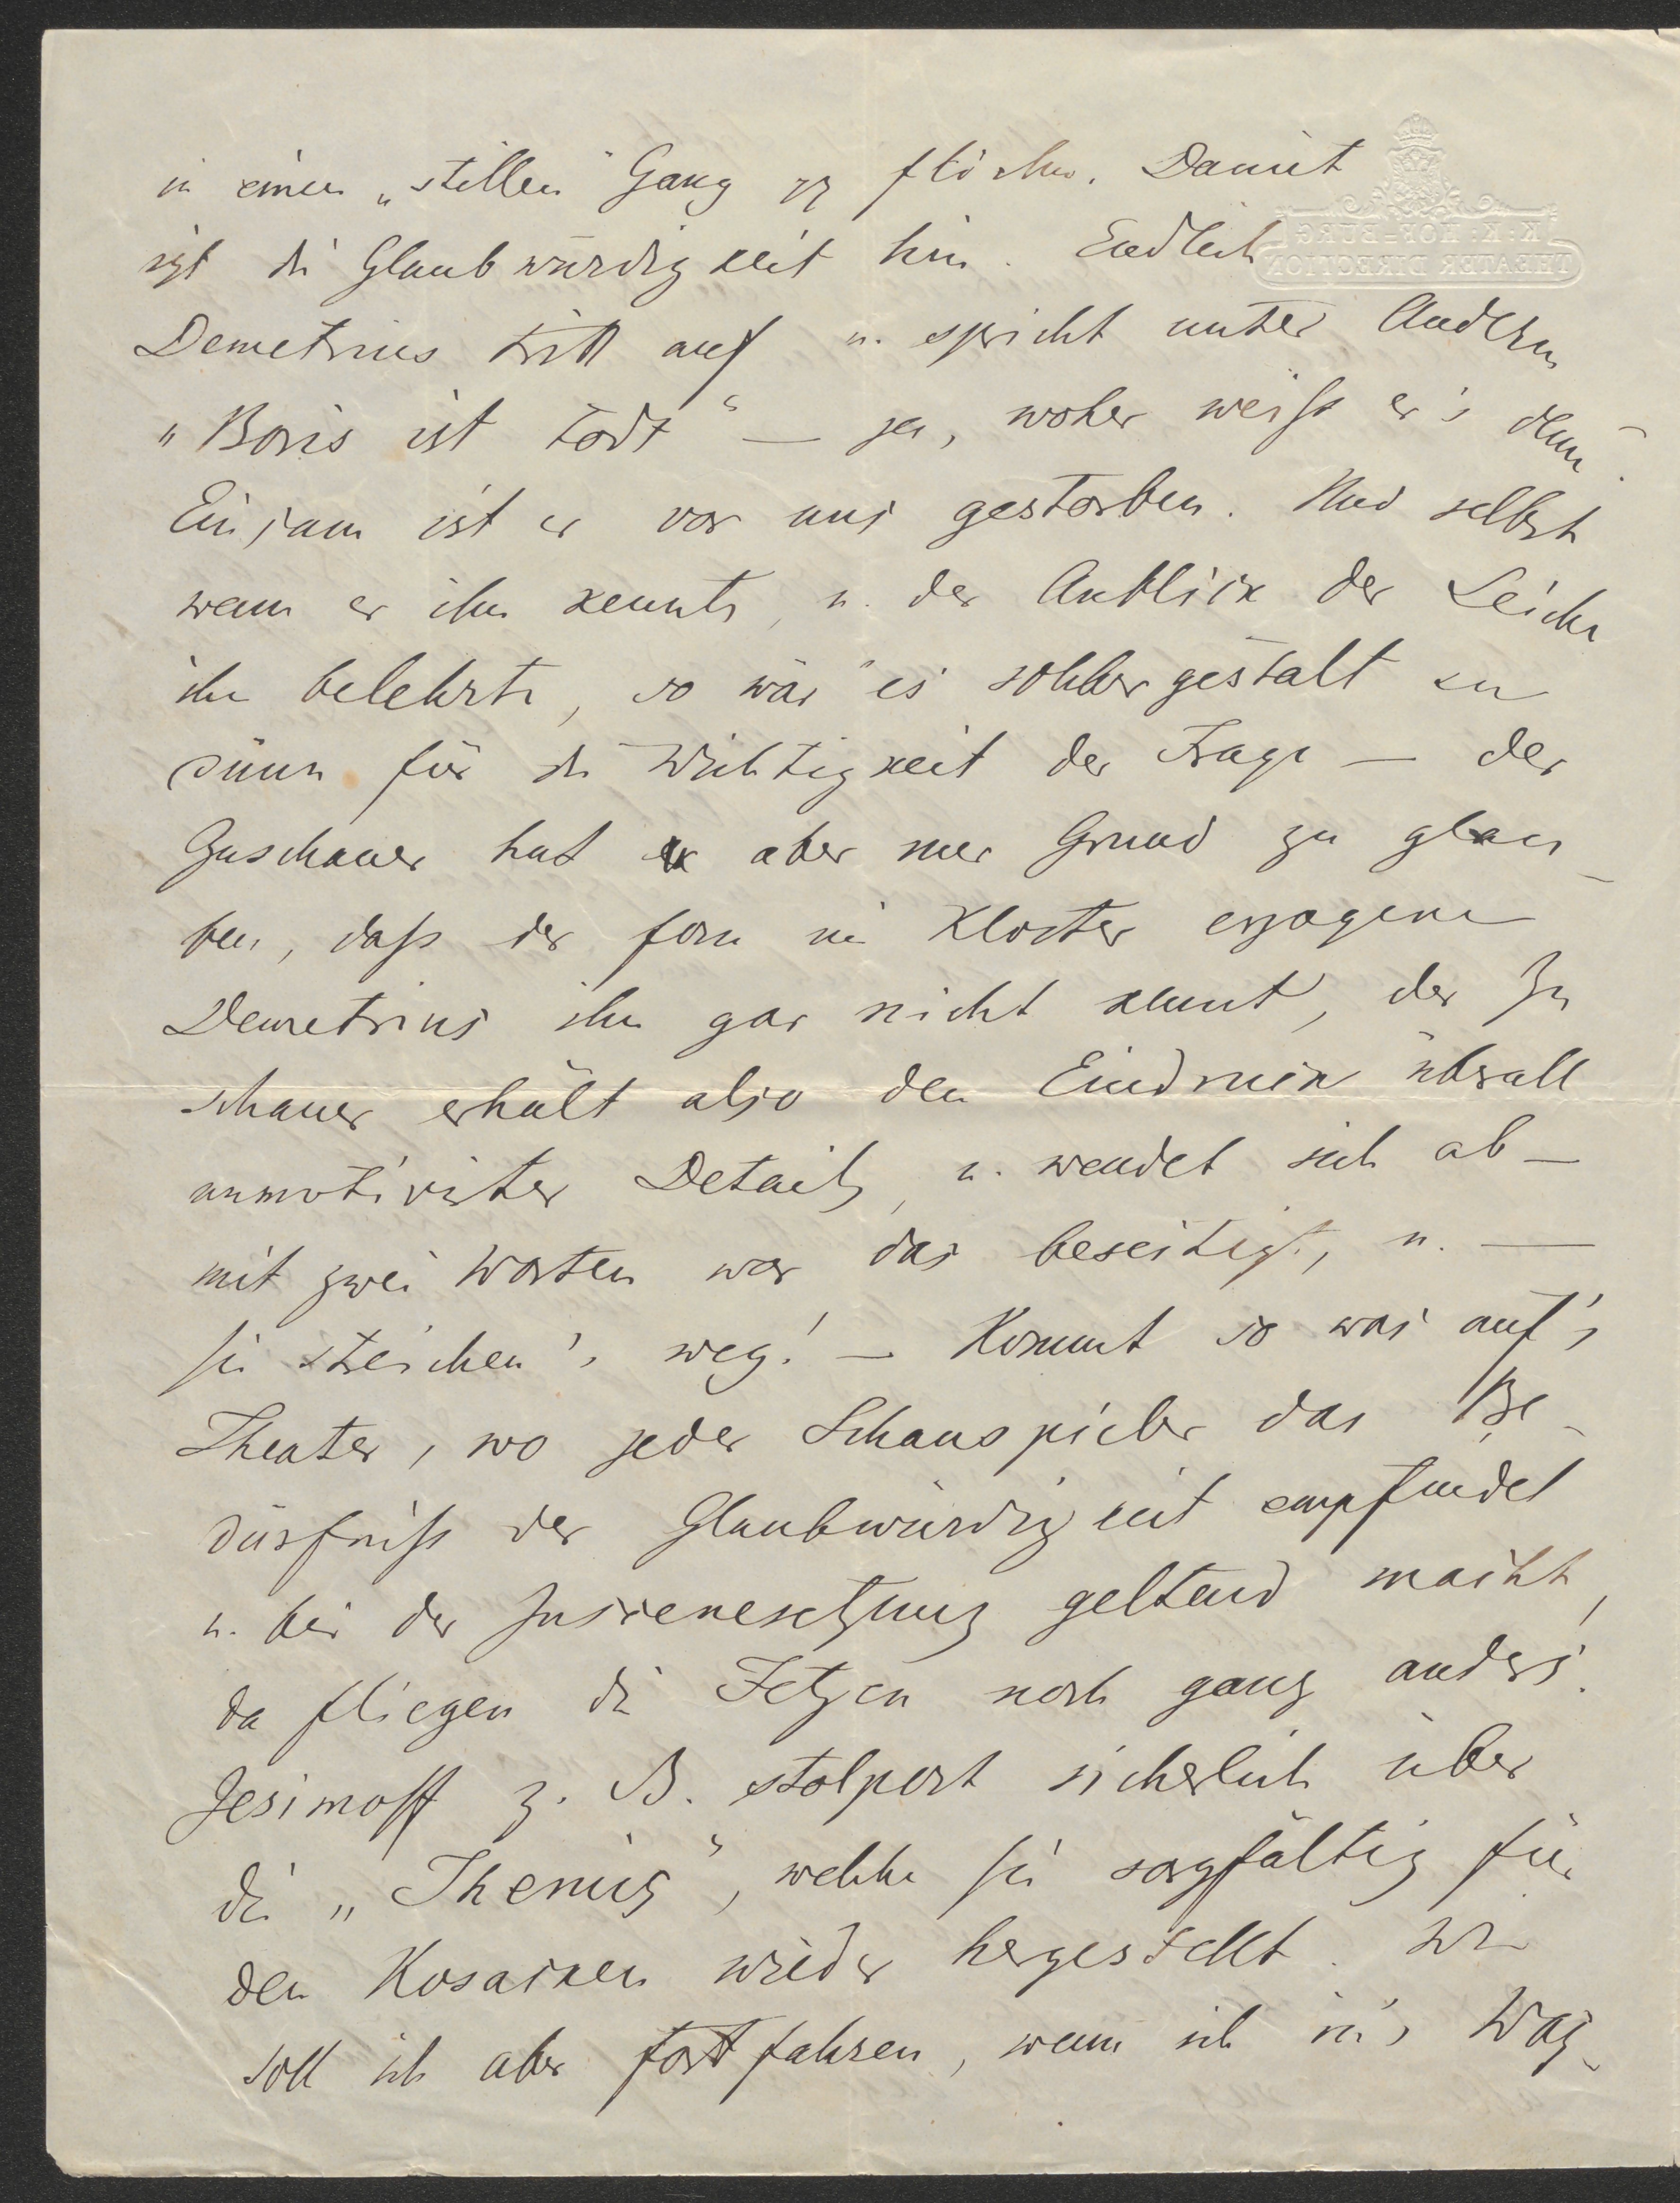 in einen „stillen" Gang zu flüchten. Damit
ist die Glaubwürdigkeit hin. Endlich
Demetrius tritt auf u. spricht unter Andern
„Boris ist todt" — ja, woher weiß er's denn?
Einsam ist er vor uns gestorben. Und selbst
wenn er ihn kennte, u. der Anblick der Leiche
ihn belehrte, so wär' es solchergestalt zu
dünn für die Wichtigkeit der Frage — der
Zuschauer hat aber nur Grund zu glau-
ben, daß der fern im Kloster erzogene
Demetrius ihn gar nicht kennt, der Zu
schauer erhält also den Eindruck überall
unmotivirter Details, u. wendet sich ab —
mit zwei Worten war das beseitigt, u. —
Sie streichen's weg! — Kommt so was auf's
Theater, wo jeder Schauspieler das Be-
dürfniß der Glaubwürdigkeit empfindet
u. bei der Inscenesetzung geltend macht,
da fliegen die Fetzen noch ganz anders.
Jesimoff z. B. stolpert sicherlich über
die „Themis", welche Sie sorgfältig für
den Kosacken wieder hergestellt. Wo
soll ich aber fortfahren, wenn ich in's Weg-
K: K: HOF-BURG
THEATER DIRECTION